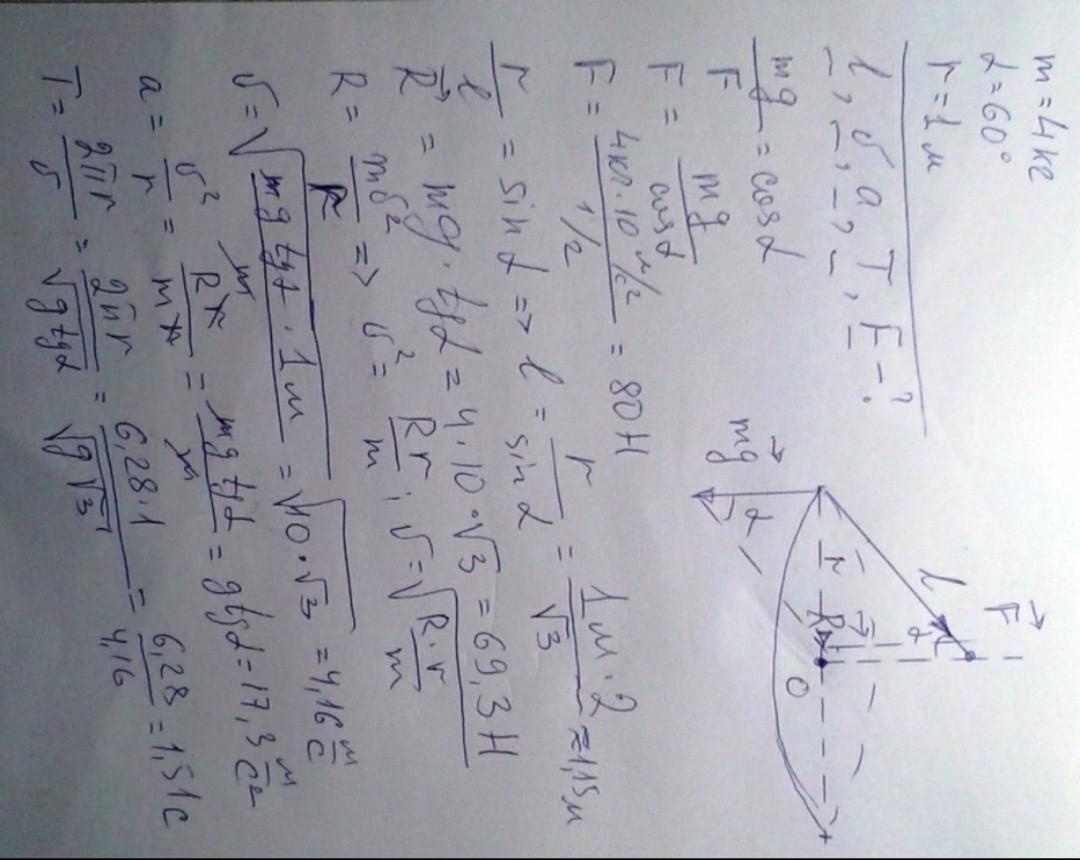 m = 4кг
α = 60°
r = 1м
l, υ, a, T, F - ?
mg/F = cosα
F = mg/cosα
F = 4кг·10 м/с²/1/2 = 80Н
r/l = sinα => l = r/sinα = 1м·2/√3 ≈ 1,15м
R⃗ = mg·tgα = 4·10·√3 = 69,3Н
R = mυ²/r => υ² = Rr/m; υ = √R·r/m
υ = √mg tgα·1м/m = √10·√3 = 4,16 м/с
a = υ²/r = Rr/mr = mg tgα/m = g tgα = 17,3 м/с²
T = 2πr/υ = 2πr/√g tgα = 6,28·1/√g√3 = 6,28/4,16 = 1,51с
F⃗
l
α
r
R⃗
O
mg⃗
α